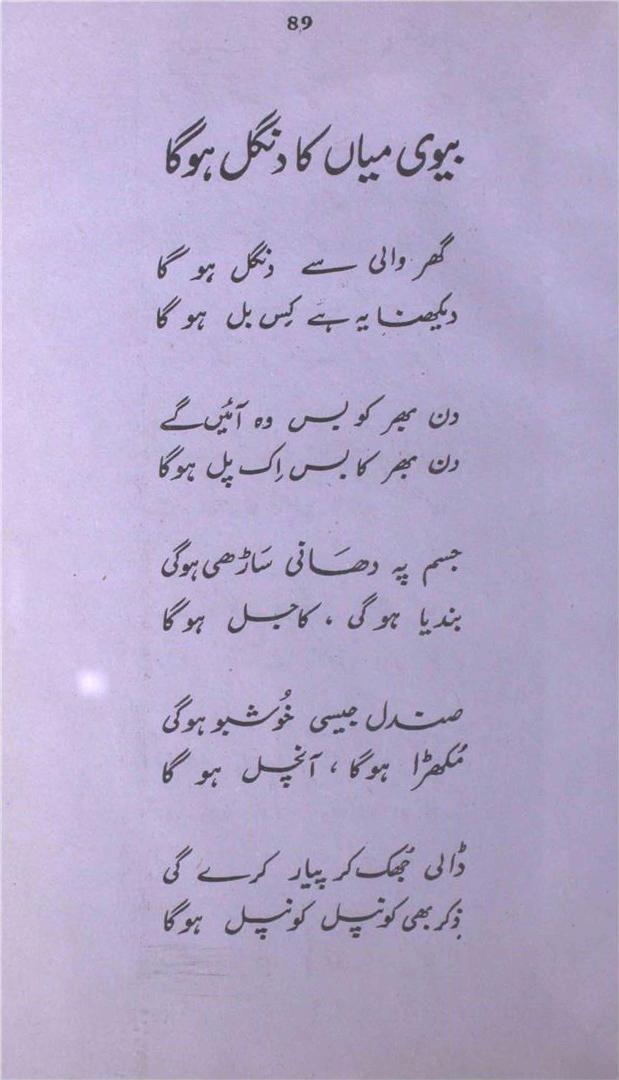 89
بیوی میاں کا دنگل ہوگا
گھر والی سے دنگل ہو گا
دیکھنا یہ ہے کِس بل ہو گا
دن بھر کو بس وہ آئیں گے
دن بھر کا بس اِک پل ہوگا
جسم پہ دھَانی سَاڑھی ہوگی
بندیا ہو گی ، کاجل ہو گا
صندل جیسی خُوشبو ہوگی
مُکھڑا ہوگا ، آنچل ہو گا
ڈالی جُھک کر پیار کرے گی
ذِکر بھی کونپل کونپل ہوگا